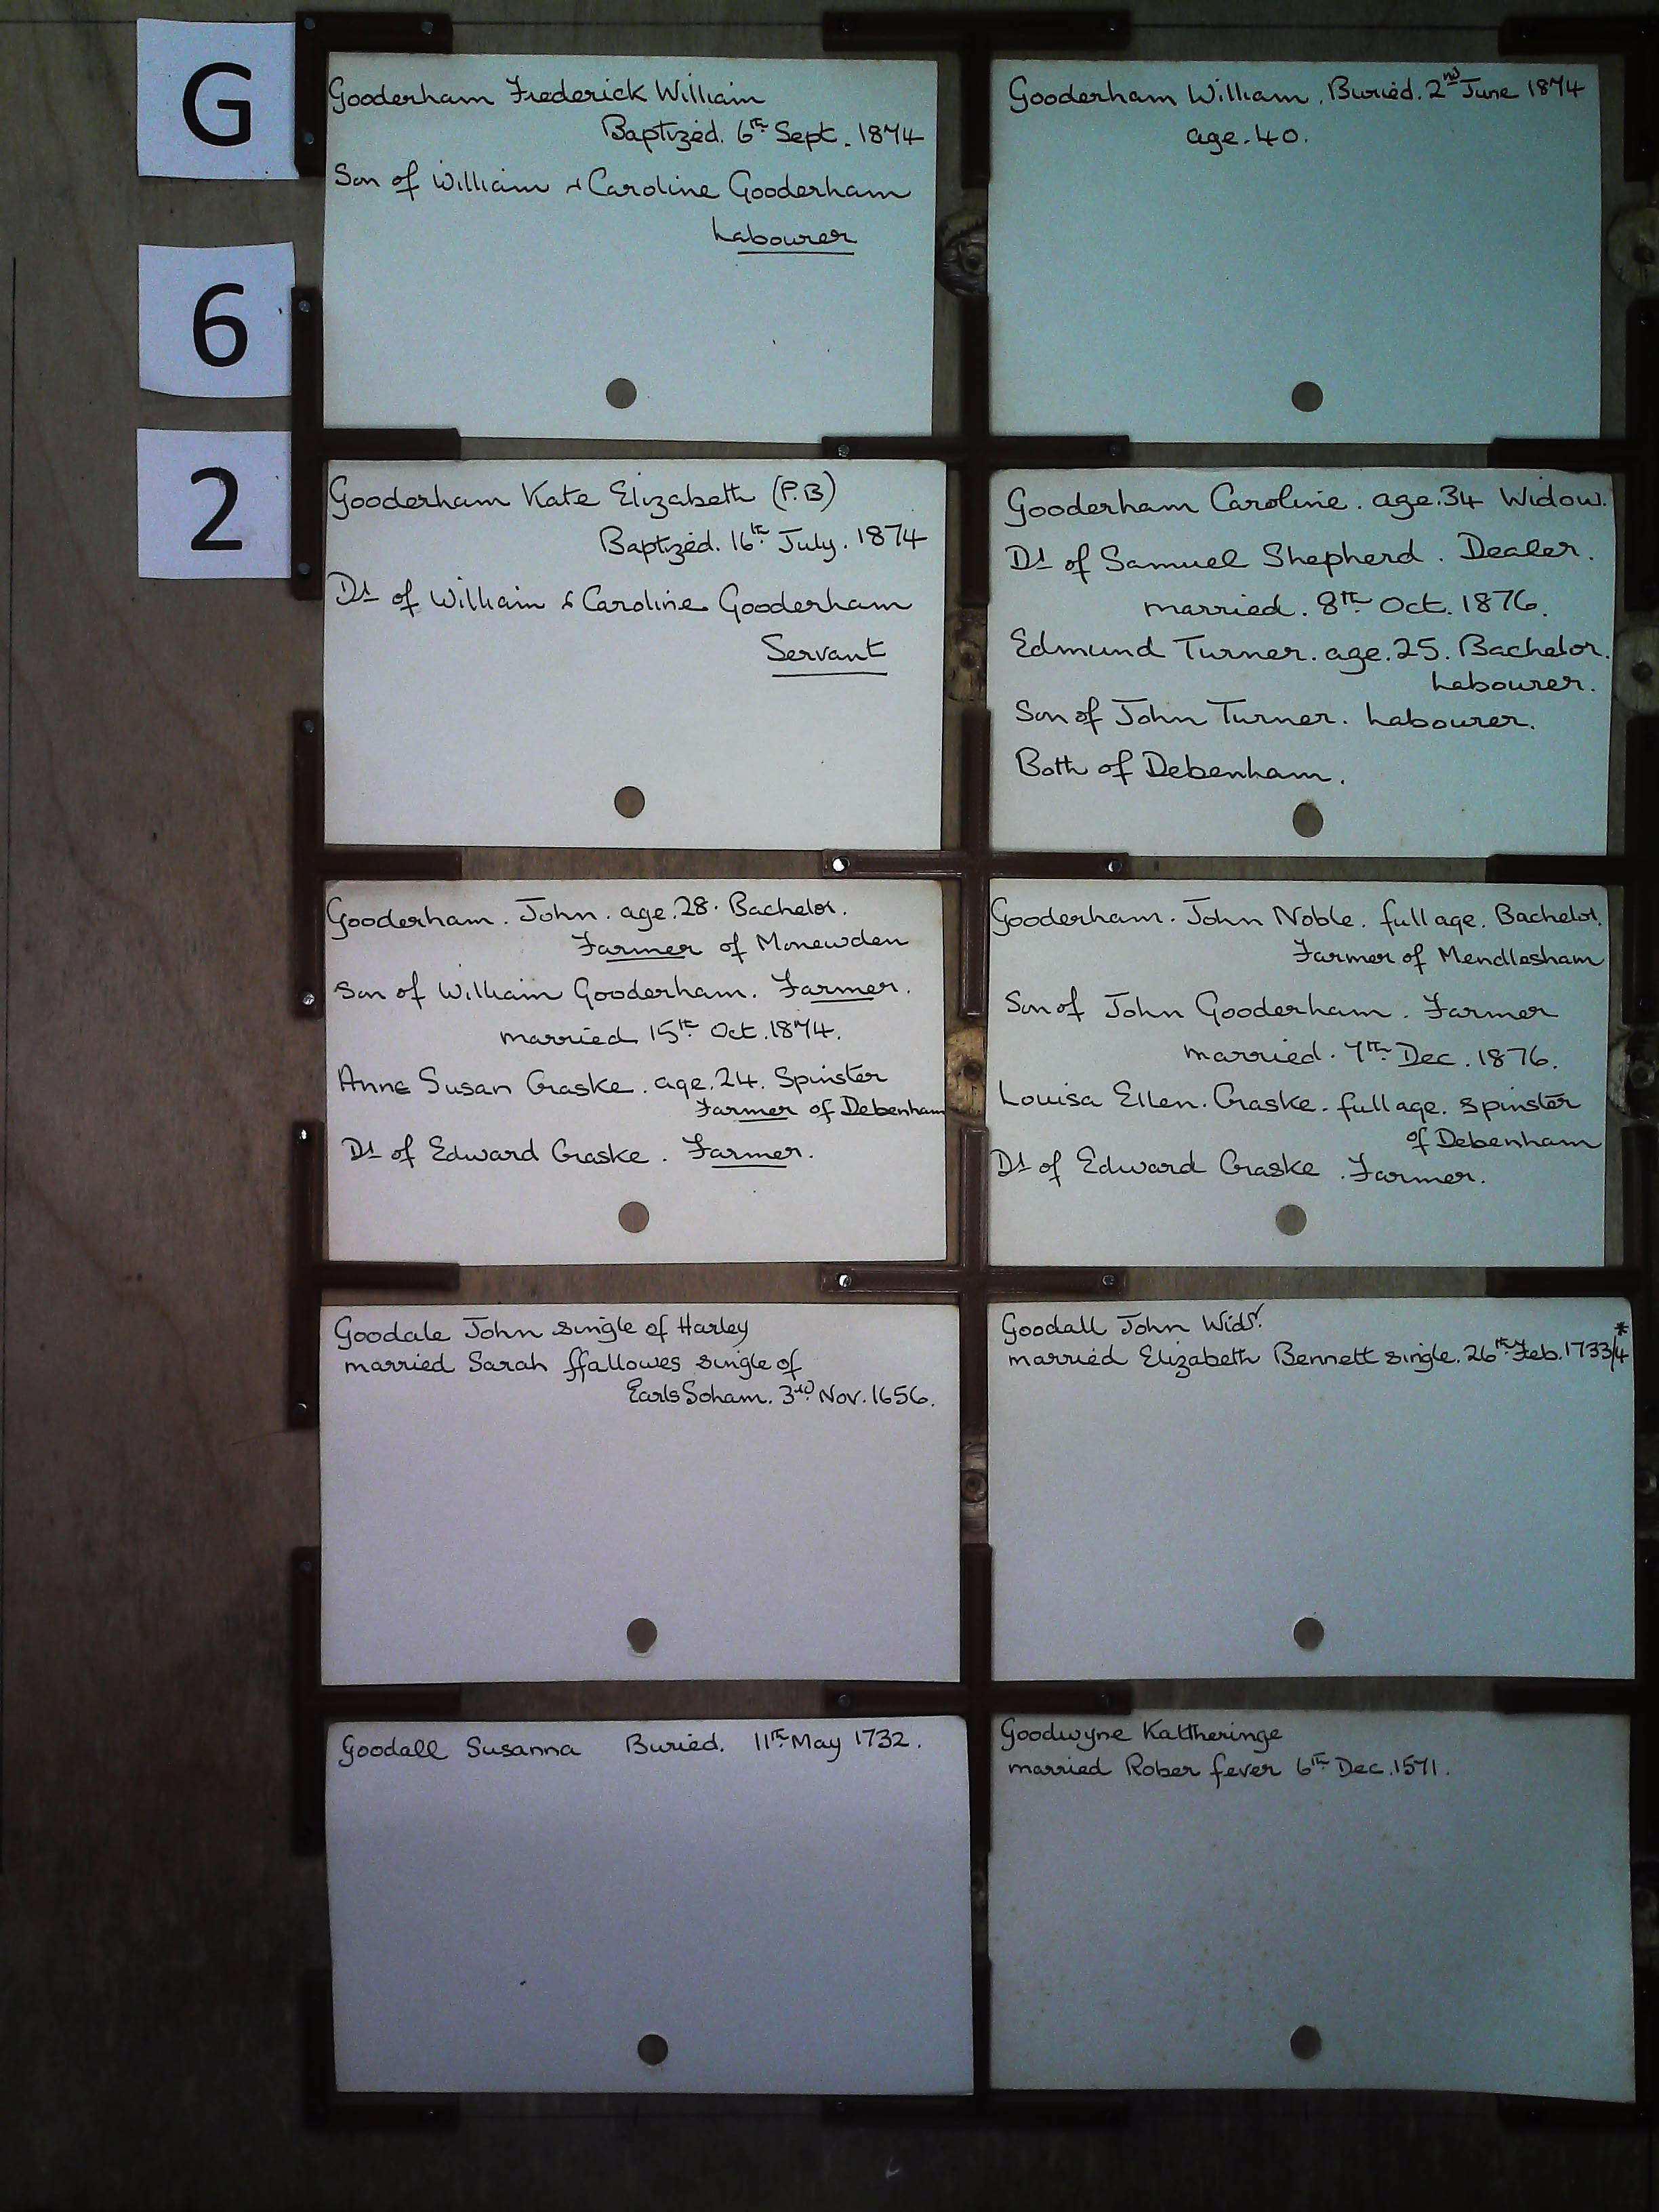 G
6
2
Gooderham Frederick William
Baptized. 6th Sept. 1874
Son of William & Caroline Gooderham
Labourer
Gooderham William. Buried. 2nd June 1874
age. 40.
Gooderham Kate Elizabeth (P.B)
Baptized. 16th July. 1874
Dr of William & Caroline Gooderham
Servant
Gooderham Caroline. age. 34 Widow.
Dr of Samuel Shepherd. Dealer.
married. 8th Oct. 1876.
Edmund Turner. age. 25. Bachelor.
Labourer.
Son of John Turner. Labourer.
Both of Debenham.
Gooderham. John. age. 28. Bachelor.
Farmer of Monewden
Son of William Gooderham. Farmer.
married 15th Oct. 1874.
Anne Susan Craske. age. 24. Spinster
Farmer of Debenham
Dr of Edward Craske. Farmer.
Gooderham. John Noble. full age. Bachelor.
Farmer of Mendlesham
Son of John Gooderham. Farmer
married. 7th Dec. 1876.
Louisa Ellen. Craske. full age. Spinster
of Debenham
Dr of Edward Craske. Farmer.
Goodale John single of Harley
married Sarah ffallowes single of
Earls Soham. 3rd Nov. 1656.
Goodall John Widr.
married Elizabeth Bennett single. 26th Feb. 1733/4 *
Goodall Susanna Buried. 11th May 1732.
Goodwyne Kattheringe
married Rober fever 6th Dec. 1571.